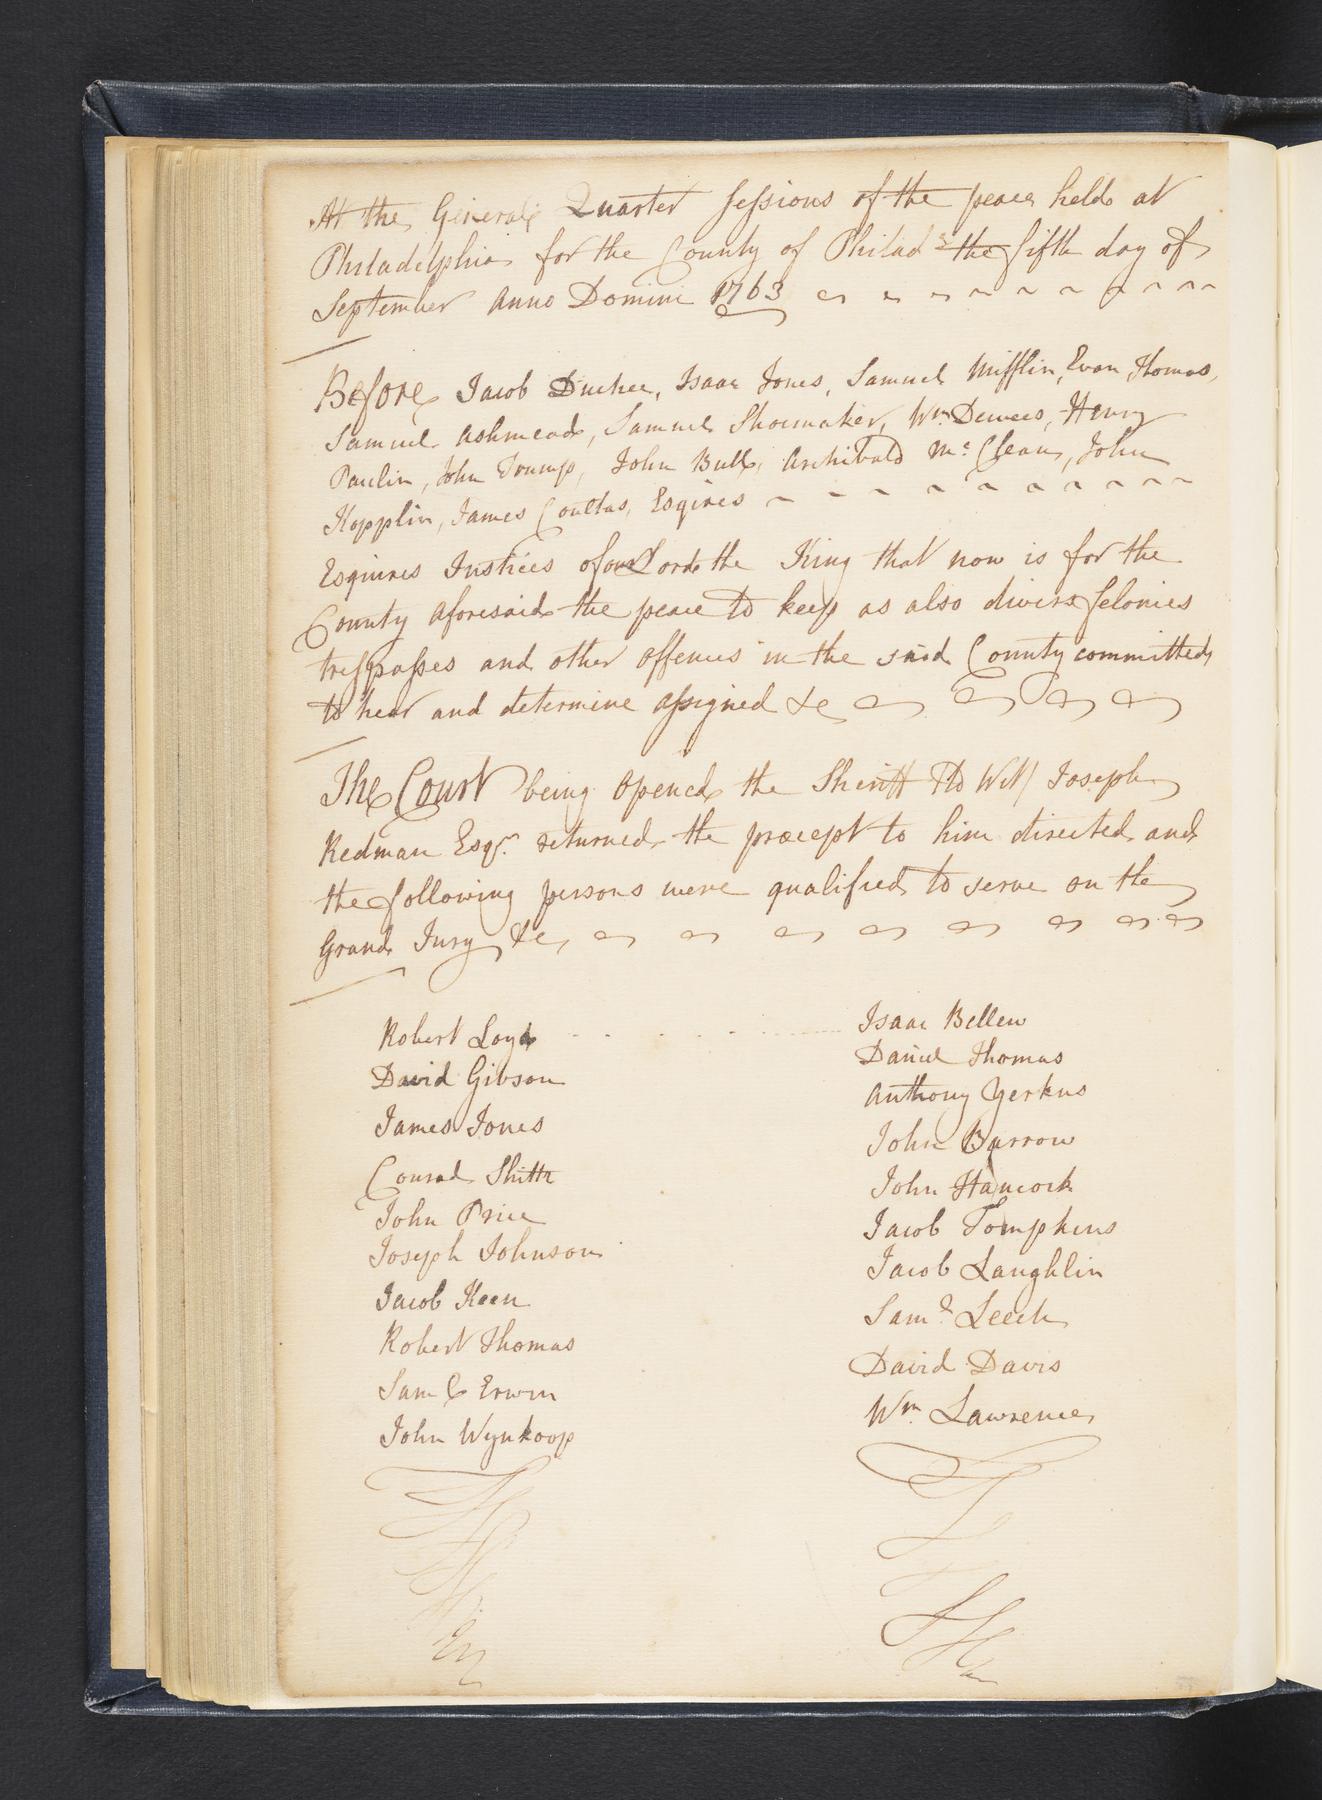 At the General Quarter Sessions of the peace held at
Philadelphia for the County of Philad.a the fifth day of
September Anno Domini 1763
Before Jacob Duchee, Isaac Jones, Samuel Mifflin, Evan Thomas,
Samuel Ashmead, Samuel Shoemaker, Wm. Dewees, Henry
Paulin, John Trump, John Bull, Archibald Mc. Clean, John
Kopplin, James Coultas, Esqires
Esquires Justices of our Lord the King that now is for the
County aforesaid the peace to keep as also divers felonies
trespasses and other offences in the said County committed
to hear and determine assigned &c
The Court being opened the Sheriff To Wit/ Joseph
Redman Esqr. returned the precept to him directed and
the following persons were qualified to serve on the
Grand Jury &c,
Robert Loyd
David Gibson
James Jones
Conrad
John Price
Joseph Johnson
Jacob Keen
Robert Thomas
Saml Erwin
John Wynkoop
Isaac Bellew
Daniel Thomas
Anthony Yerkus
John Barrow
John Hancock
Jacob Tompkins
Jacob Laughlin
Saml. Leech
David Davis
Wm. Lawrence